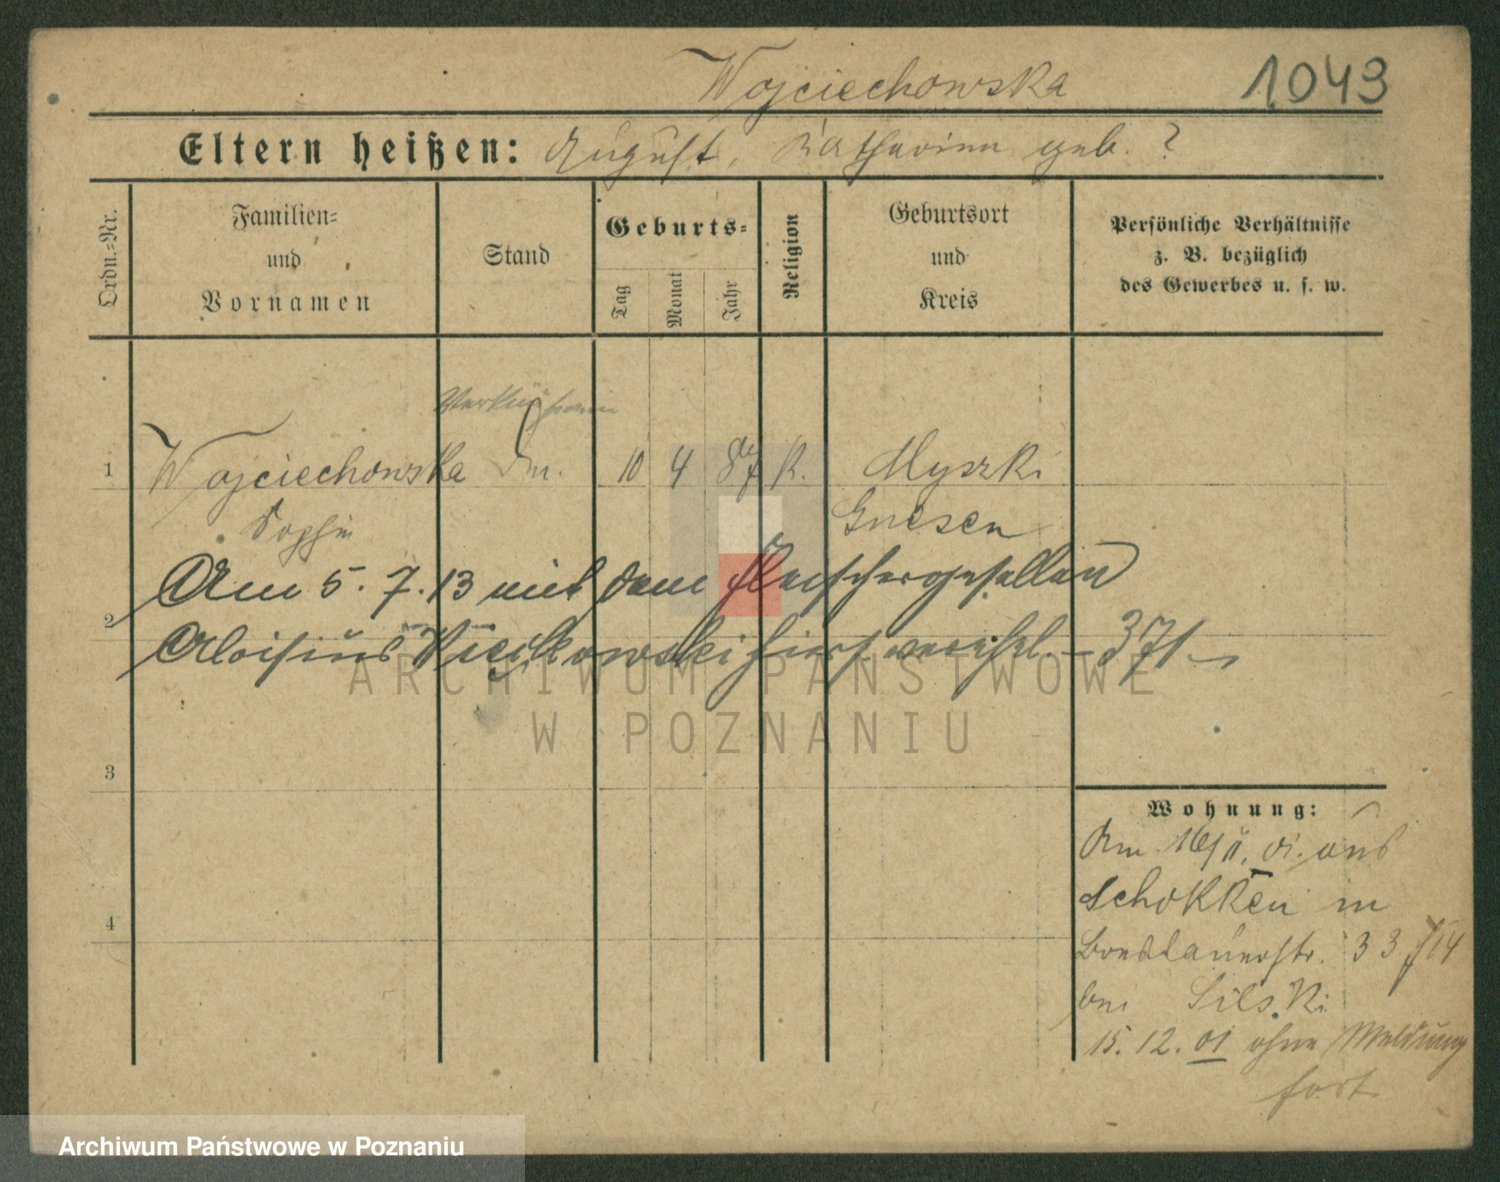 Wojciechowska 1043
Eltern heißen: August, Katharina geb. ?
Ordn.=Nr.
Familien=
und
Vornamen
Stand
Geburts=
Tag
Monat
Jahr
Religion
Geburtsort
und
Kreis
Persönliche Verhältnisse
z. B. bezüglich
des Gewerbes u. s. w.
Verkäuferin
1 Wojciechowska Dm. 10 4 87 K. Myszki
Sophie Gnesen
Am 5. 7. 13 mit dem Fleischergesellen
2
Aloisius hier verehel. – 371 –
3
4
Wohnung:
Am 16/ 01. aus
Schokken in
Breslauerstr. 33
bei Silski
15. 12. 01 ohne Meldung
fort
ARCHIWUM PAŃSTWOWE
W POZNANIU
Archiwum Państwowe w Poznaniu